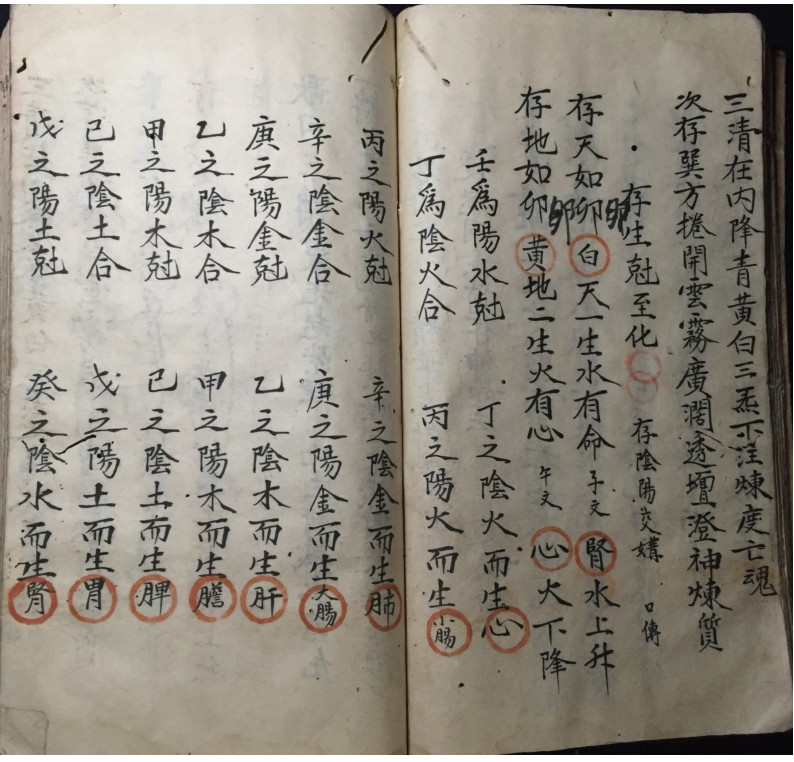 三清在内降青黄白三炁下注煉度亡魂
次存巽方捲開雲霧廣濶透壇澄神煉質
存生尅至化 存陰陽交媾 口傳
存天如卵白天一生水有命子文腎水上升
存地如卵黄地二生火有心午文心火下降
壬爲陽水尅 丁之陰火而生心
丁爲陰火合 丙之陽火而生小腸
丙之陽火尅 辛之陰金而生肺
辛之陰金合 庚之陽金而生大腸
庚之陽金尅 乙之陰木而生肝
乙之陰木合 甲之陽木而生膽
甲之陽木尅 己之陰土而生脾
己之陰土合 戊之陽土而生胃
戊之陽土尅 癸之陰水而生腎